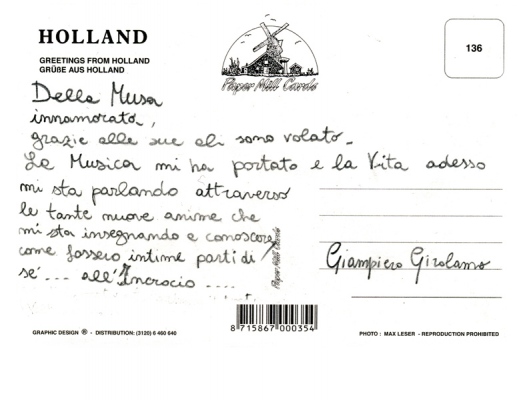 HOLLAND
GREETINGS FROM HOLLAND
GRÜßE AUS HOLLAND
Paper Mill Cards
136
Della Musa
innamorata,
grazie alle sue ali sono volato.
La Musica mi ha portato e la Vita adesso
mi sta parlando attraverso
le tante nuove anime che
mi sta insegnando e conoscere
come fossero intime parti di
se'.... all'Incrocio ....
Paper Mill Cards
Giampiero Girolamo
8 715867 000354
GRAPHIC DESIGN ® - DISTRIBUTION: (3120) 6 460 640
PHOTO : MAX LESER - REPRODUCTION PROHIBITED